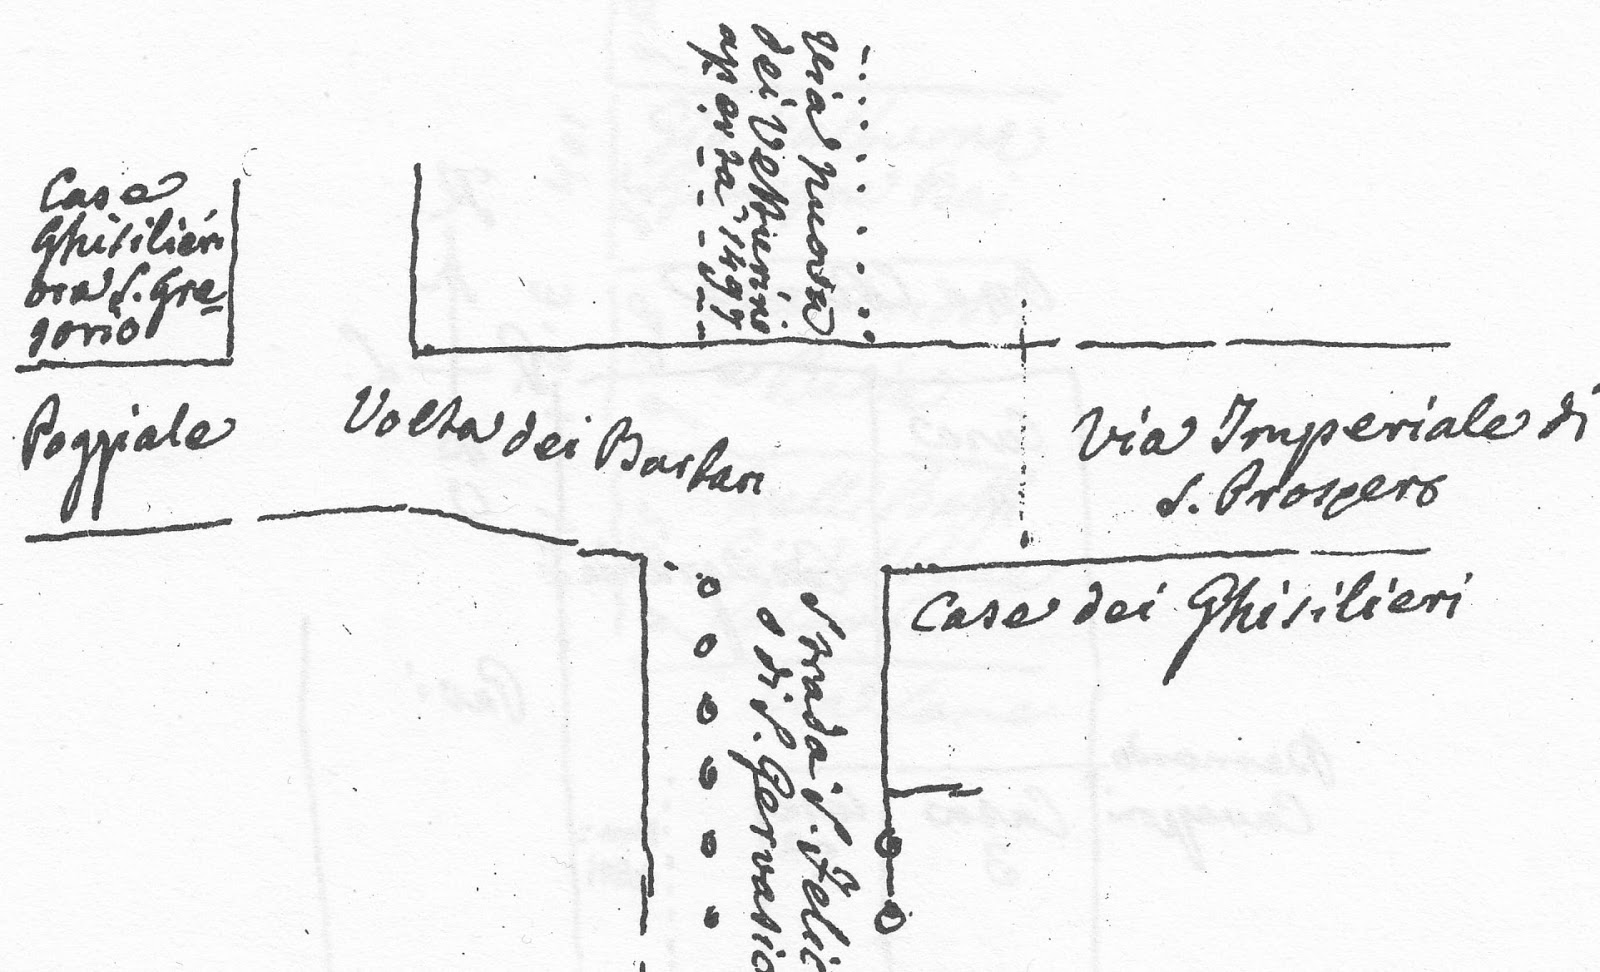 Via nuova
dei Vetturini
aperta 1497
Case
Ghisilieri
ora S. Gre-
gorio
Poggiale
Volta dei Barbari
Via Imperiale di
S. Prospero
Case dei Ghisilieri
Strada S. Felice
o di S. Gervasio